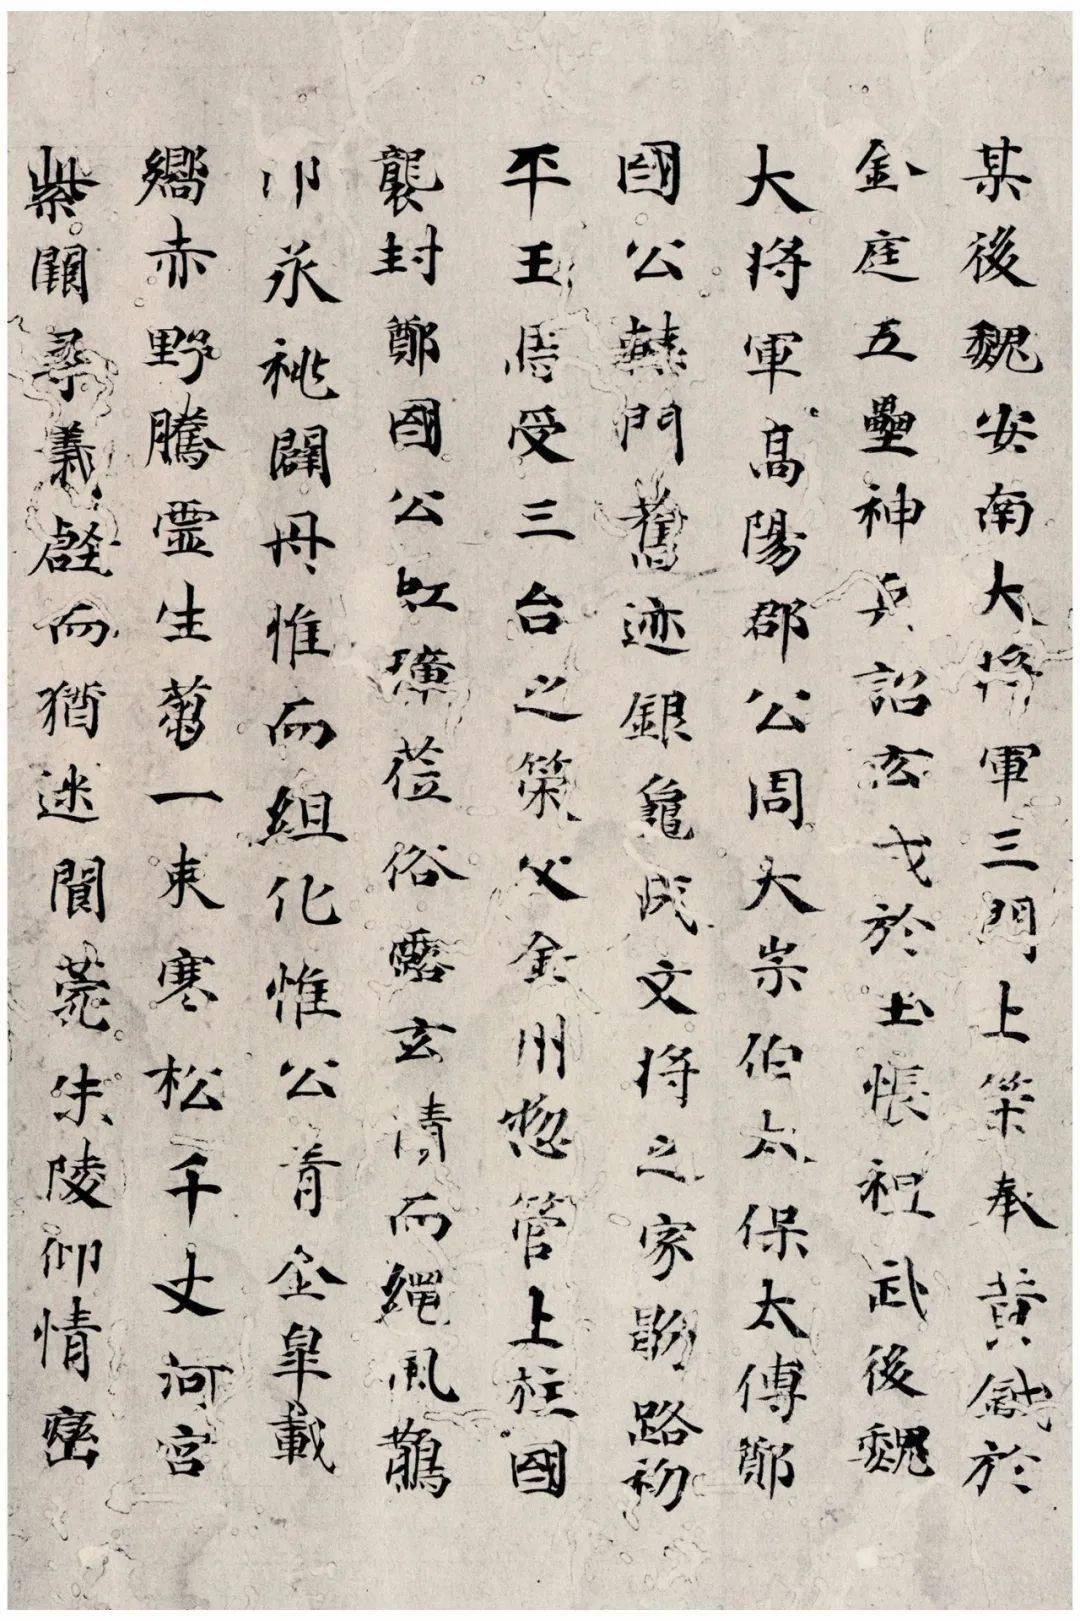 某後魏安南大將軍三門上策奉黃鉞於
金庭五壘神兵詔玄戈於玉帳祖武後魏
大將軍高陽郡公周大宗伯太保太傅鄭
國公赫門舊迹銀龜成文將之家路初
平王周受三台之策父金州惣管上柱國
襲封鄭國公虹瓊莅俗露玄清而繩風鵲
印永祧闢丹惟而組化惟公青丘阜載
嚮赤野騰靈生蒭一束寒松千丈河宮
紫關尋義壑而猶迷閬菀朱陵仰情巒